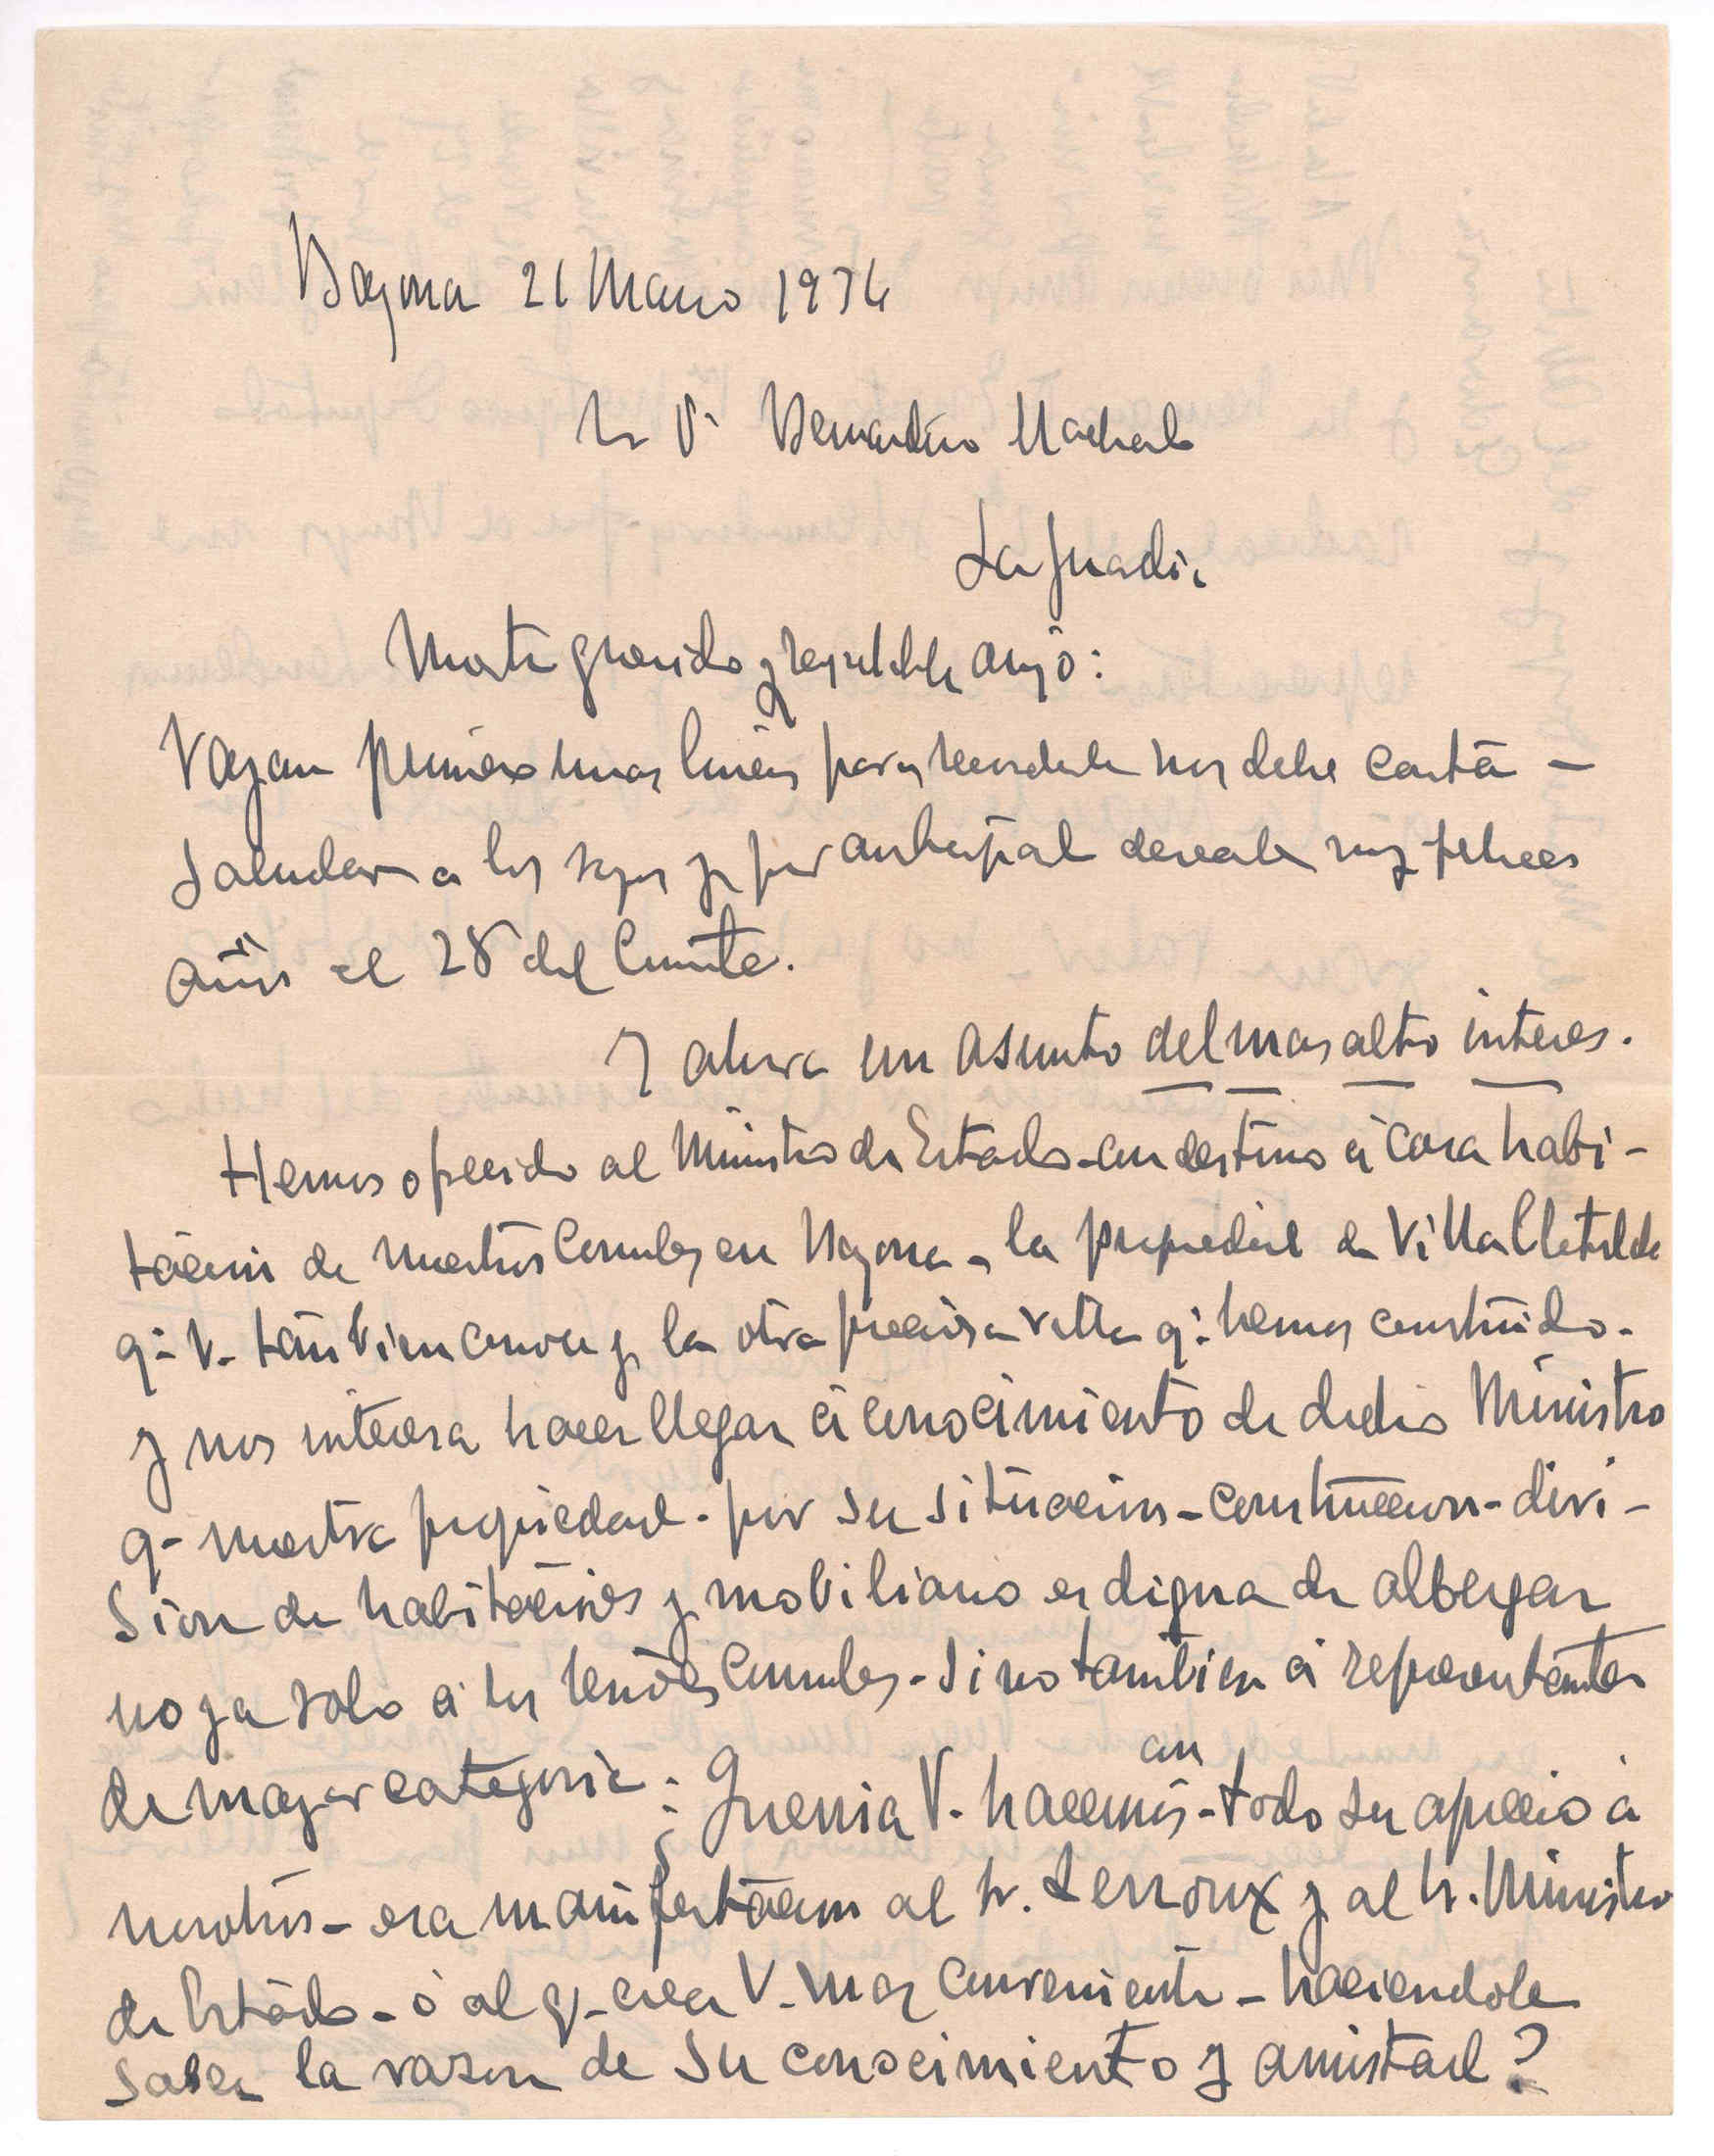 Bayona 21 Marzo 1934
Sr Dn Bernardino Machado
La Guardia
Nuestro querido y respetable amigo:
Vayan primero unas lineas para recordarle nos debe carta -
Saludar a los suyos y por anticipado desearle muy felices
años el 28 del Crriente.
Y ahora un asunto del mas alto interes.
Hemos ofrecido al Ministro de Estado - con destino á casa habi-
tacion de nuestros Consules en Bayona - la propiedad de Villa Clotilde
q- V. tambien conoce y la otra preciosa villa q- hemos construido.
y nos interesa hacer llegar á conocimiento de dicho Ministro
q- nuestra propiedad - por su situacion - construccion - divi-
sion de habitaciones y mobiliario es digna de albergar
no ya solo á los Señores Consules - sino tambien á representantes
de mayor categoria: ¿Querria V. hacernos - con todo su aprecio á
nosotros - esa manifestacion al Sr. Lerroux y al Sr. Ministro
de Estado - ó al q- crea V. mas conveniente - haciendole
saber la razon de su conocimiento y amistad?